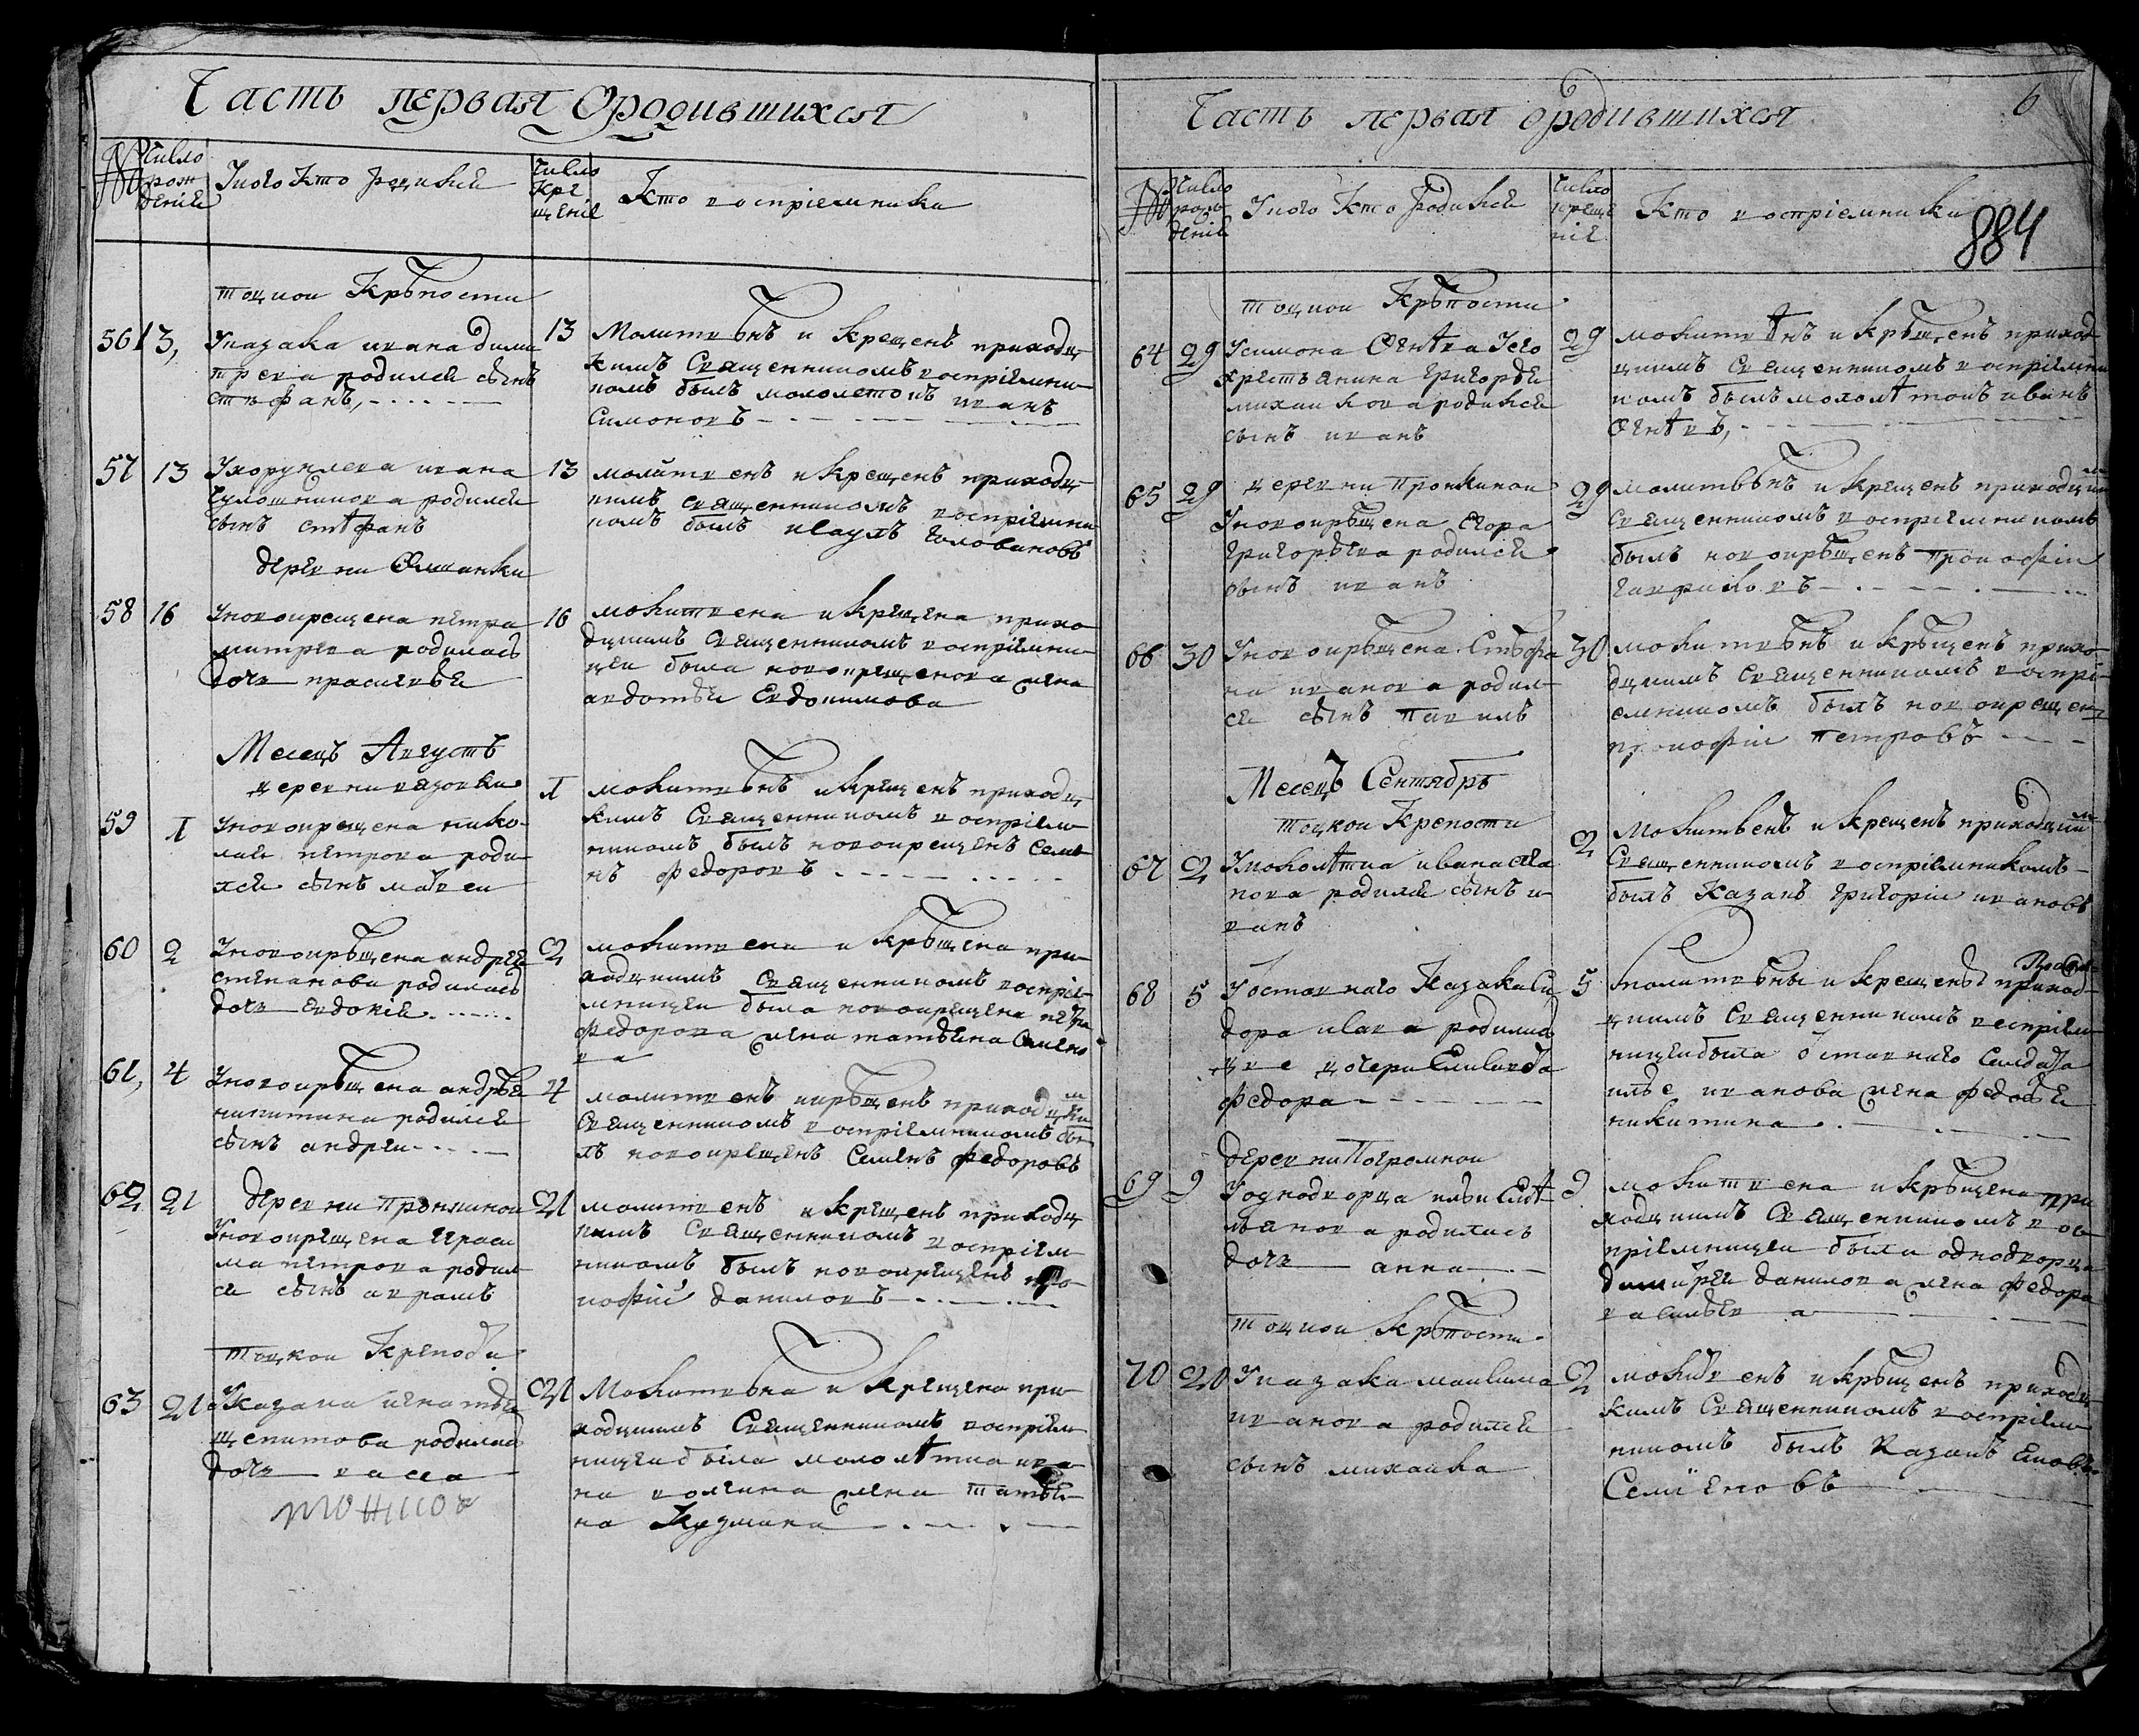 Часть первая Ородившихся
№
Число рождения
Укого кто родился
Число крещения
Кто восприемники
тоцкои Крѣпости
56 13, Указака ивана дими
трева родился сынъ
стефанъ,
13 Молитвѣнъ и крещенъ приходц
кимъ священникомъ восприемни
комъ былъ малолетокъ иванъ
Симоновъ
57 13 Ухорунжева ивана
родился
сынъ стѣфанъ
13 молитвенъ и крещенъ приходц
кимъ священникомъ восприемни
комъ былъ есаулъ Головановъ
деревни
58 16 Уновокрещена петра
митрева родилась
дочь прасковья
16 молитвена и крещена прихо
дцкимъ священникомъ восприемни
цеи была новокрещенова жена
авдотья Евдокимова
Месецъ Августъ
деревни вязовки
59 1 Уновокрещена нико
лая петрова роди
лся сынъ матвеи
1 молитвѣнъ и крещенъ приходц
кимъ священникомъ восприем
никомъ былъ новокрещенъ семе
нъ федоровъ
60 2 Уновокрѣщена андрея
степанова родилась
дочь Евдокия
2 молитвена и крѣщена при
ходцкимъ священникомъ восприе
мницеи была новокрещена петра
федорова жена татьяна Семено
ва
61, 4 Уновокрѣщена андрѣя
никитина родился
сынъ андреи
4 молитвенъ икрѣщенъ приходцким
священникомъ восприемникомъ бы
лъ новокрещенъ Семенъ федоровъ
62 21 деревни пронкинои
Уновокрещена гераси
ма петрова родил
ся сынъ аврамъ
21 молитвенъ и крещенъ приходц
кимъ священникомъ восприем
никомъ былъ новокрещенъ про
кофий даниловъ
тоцкои Крепости
63 21 Указака игнатья
щепитова родилась
дочь васса
21 Молитвѣна и крещена при
ходцкимъ Священникомъ восприем
ницеи была малолѣтка ива
на жена татья
на Кузмина
Часть первая ородившихся
6
884
№
Число рождения
Укого Кто родился
Число крещения
Кто восприемники
тоцкои Крѣпости
64 29 Усимона
крестьянина григорья
михаилова родился
сынъ иванъ
29 молитвѣнъ и крѣщенъ приход
цкимъ священникомъ восприемни
комъ былъ малолѣтокъ иванъ
65 29 деревни Пронкинои
Уновокрѣщена Егора
григорьева родился
сынъ иванъ
29 молитвѣнъ и крещенъ приходцким
священникомъ восприемникомъ
былъ новокрѣщенъ прокофии
гавриловъ
66 30 Уновокрѣщена Стѣфа
на иванова родил
ся сынъ павилъ
30 молитвѣнъ и крѣщенъ прихо
дцкимъ священникомъ воспри
емникомъ былъ новокрещен
прокофии петровъ
Месецъ Сентябрь
тоцкои Крепости
67 2 Умололѣтка ивана
родился сынъ и
ванъ
2 Молитвенъ и крещенъ приходцким
священникомъ восприемникомъ
былъ Казакъ григории ивановъ
68 5 Уоставнаго Казака Си
дора родились
две дочери Елисавета
федора
5 молитвѣны и крещены приход
цкимъ священникомъ восприем
ницеи была оставнаго Салдата
ильe иванова жена федосья
никитина
деревни Погромнои
69 9 Уоднодворца ильи
родилась
дочь анна
9 молитвена и крѣщена при
ходцкимъ священникомъ вос
приемницеи была однодворца
димитрея данилова жена федора
васильева
тоцкои крѣпости
70 20 Указака максима
иванова родился
сынъ михаила
2 молитвенъ и крѣщенъ приходц
кимъ священникомъ восприем
никомъ былъ казакъ
Семiеновъ